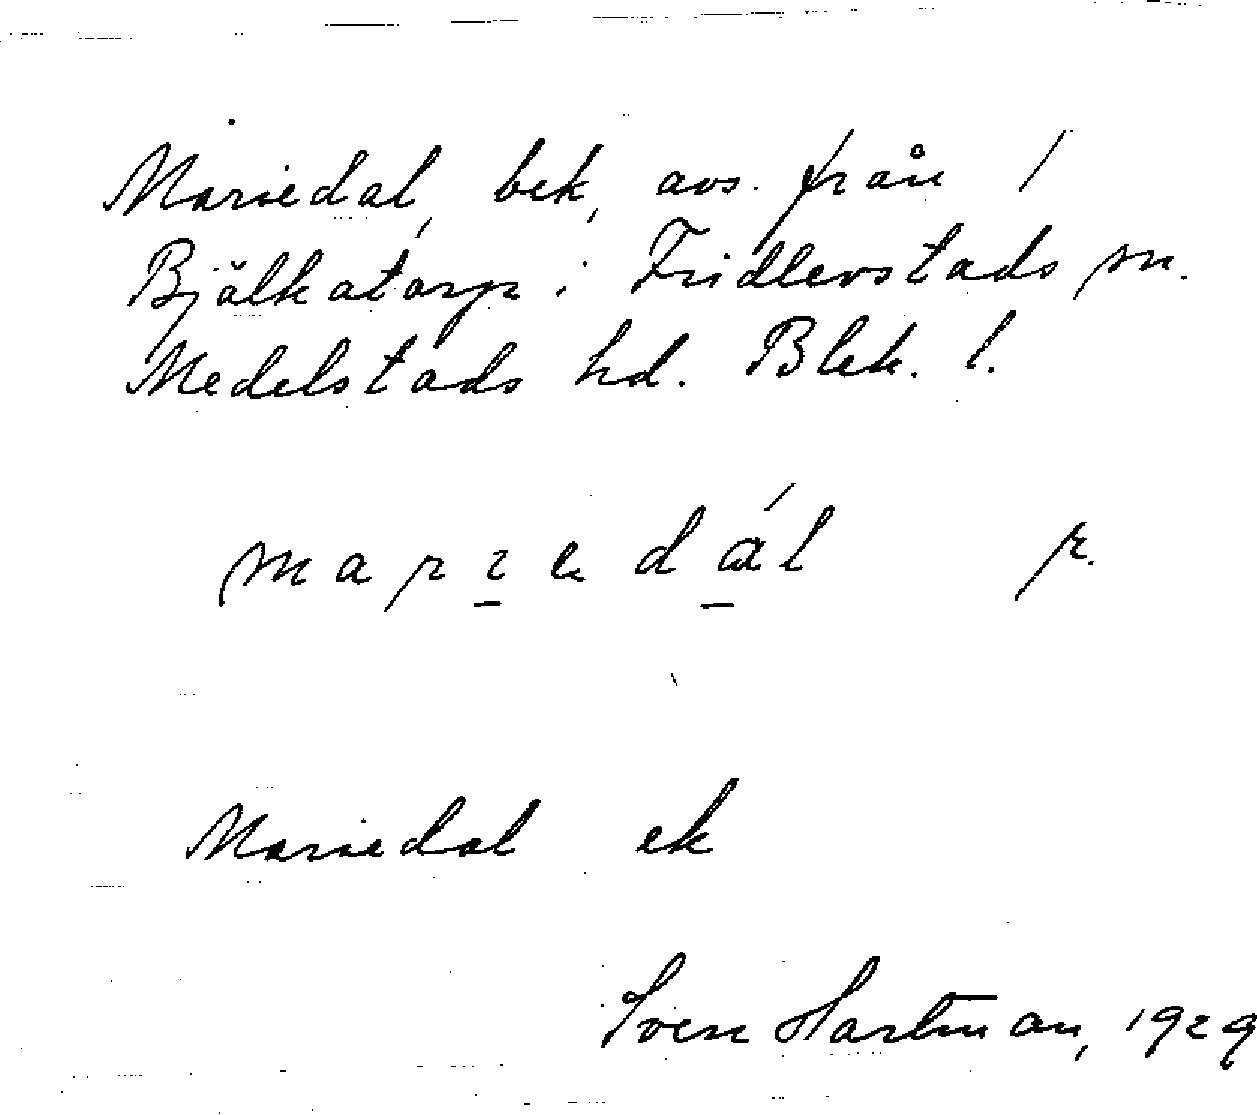 Mariedal, bek, avs. från 1
Bjälkatorp i Fridlevstads sn.
Medelstads hd. Blek. l.
marıedál r.
Mariedal ek
Sven Hartman, 1929